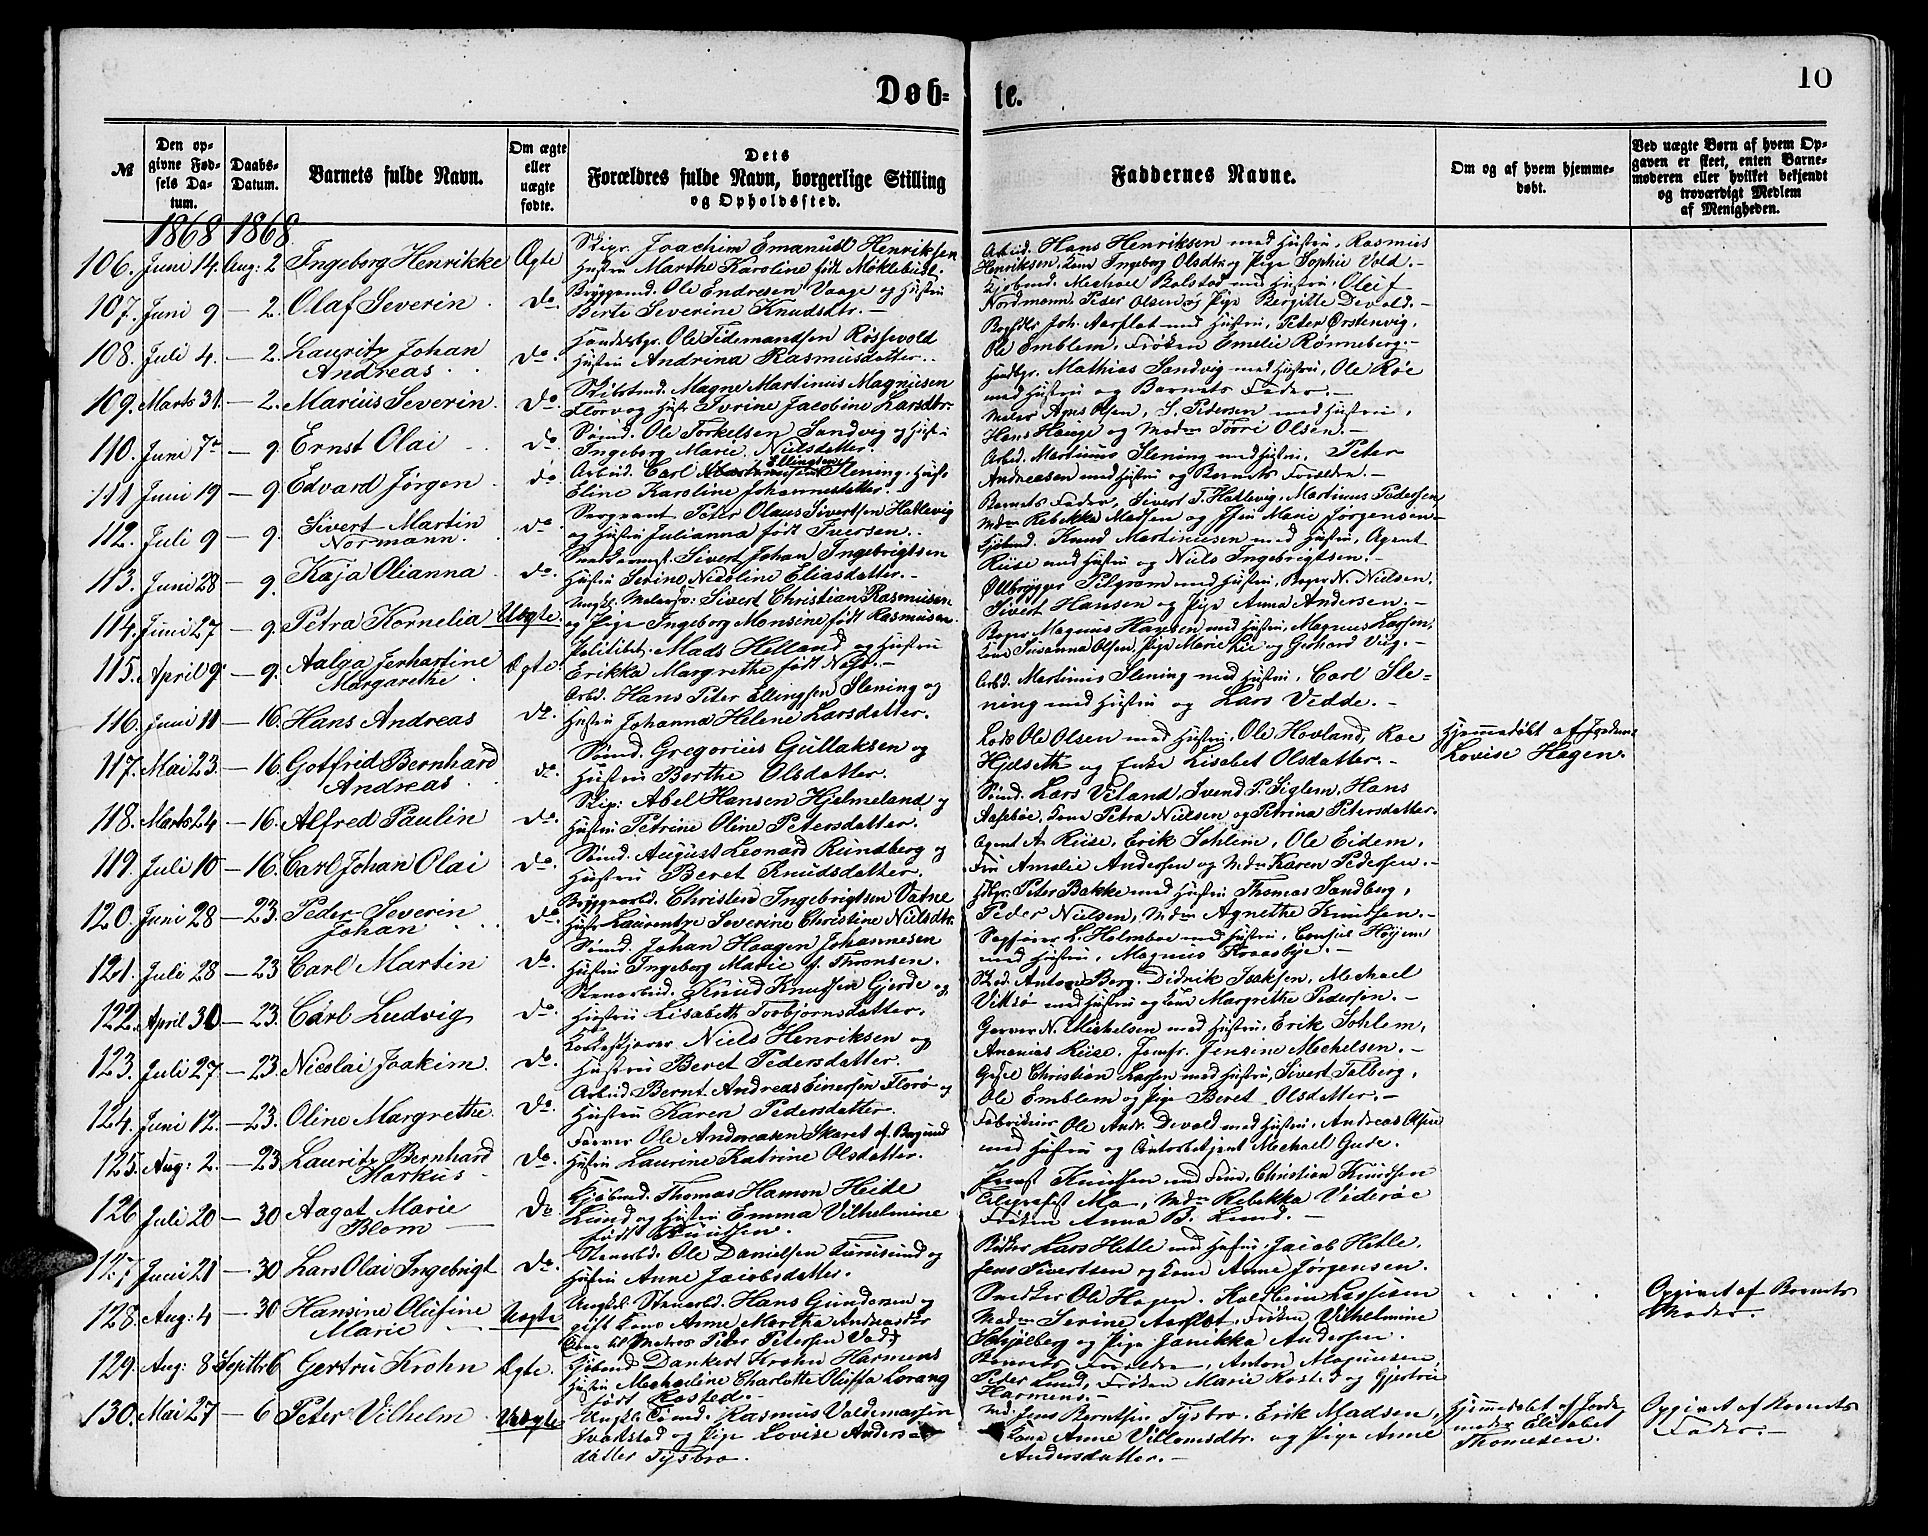 Døb-
te.
10
№
Den op-
givne Fød-
sels Da-
tum.
Daabs-
Datum.
Barnets fulde Navn.
Om ægte
eller
uægte
fødte.
Dets
Forældres fulde Navn, borgerlige Stilling
og Opholdssted.
Faddernes Navne.
Om og af hvem hjemme-
døbt.
Ved uægte Børn af hvem Op-
gaven er skeet, enten Barne-
moderen eller hvilket bekjendt
og troværdigt Medlem
af Menigheden.
1868 1868
106. Juni 14. Aug: 2 Ingeborg Henrikke Ægte
Skipr. Joachim Emanuel Henriksen
Hustru Marthe Karoline født Møklebust.
Arbeid. Hans Henriksen med Hustru, Rasmus
Henriksen, Kone Ingeborg Olsdtr og Pige Sophie Vold.-
107. Juni 9 - 2. Olaf Severin Do.
Ole Endresen Vaage og Hustru
Berte Severine Knudsdtr.-
Kjøbmd. Mechael Bolstad med Hustru, Oluf
Nordmann, Peder Olsen og Pige Bergitte Devold.-
108. Juli 4. - 2. Lauritz Johan
Andreas.
Do.
Handelsbgr. Ole Tidemandsen Røssevold
Hustru Andrina Rasmusdatter.
Joh. Aarflot med Hustru, Peter Ørstenvig,
Ole Emblem, Frøken Emelie Rønneberg.-
109. Marts 31. - 2. Marius Severin. Do.
Magne Martinus Magnusen
Florvog Hustr Larsdtr
Handbgr. Mathias Sandvig med Hustru, Ole Røe
med Hustru og Barnets Fader.-
110. Juni 7de - 9. Ernst Olai Do.
Sømd. Ole Torkelsen Sandvig og Hustru
Ingeborg Marie Nielsdatter.
Maler Olsen, S. Pedersen med Hustru,
Hans Hauge og Madm Toori Olsen.-
111 Juni 19 - 9. Edvard Jørgen Do.
Arbeid. Carl Ellingsen Slening. Hustr
Eline Karoline Johannesdatter.-
Arbed. Martinus Slening med Hustru, Peter
Andreasen med Hustru og Barnets Forældre.-
112. Juli 9 - 9. Sivert Martin
Normann.
Do.
Sergeant Peter Olaus Sivertsen Hatlevig
og Hustru Julianna født Iversen.
Barnets Fader, Sivert T. Hatlevig, Martinus Pedersen,
Madm Rebekka Madsen og Marie Jørgensen-
113. Juni 28 - 9. Kaja Olianna Do.
Sivert Johan Ingebrigtsen
Hustru Serine Nicoline Eliasdatter.-
Knud Martinusen med Hustru, Agent
Riise med Hustru og Niels Ingebrigtsen.-
114. Juni 27 - 9. Petra Kornelia Uægte.
Ungkl. Malersv: Sivert Christian Rasmusen
og Pige Ingeborg Monsine født Rasmusen.
Ølbrygger Pilgram med Hustru, Bager N. Nielsen.
Sivert Hansen og Pige Anna Andersen.-
115. April 9 - 9. Aalga Jerhartine
Margarethe
Ægte
Politibet. Mads Helland og Hustru
Erikka Margrethe født Nagd.-
Bager Magnus Hansen med Hustru, Magnus Larsen,
Kone Susanna Olsen, Pige Marie Rie og Gerhard Viig.-
116. Juni 11 - 16. Hans Andreas Do.
Arbd. Hans Peter Ellingsen Slening og
Hustru Johanna Helene Larsdatter.
Arbd. Martinus Slening med Hustru, Carl Sle-
ning med Hustru og Lars Vedde.-
117. Mai 23. - 16. Gotfrid Bernhard
Andreas.
Do.
Sømd. Gregorius Gullaksen og
Hustru Berthe Olsdatter.
Lods Ole Olsen med Hustru, Ole Hovland, Roe
Hjelseth og Enke Lisebet Olsdatter.-
Hjemmedøbt af Jordem
Lovise Hagen.
118. Marts 24 - 16. Alfred Paulin Do.
Skip: Abel Hansen Hjelmeland og
Hustru Petrine Oline Petersdatter.
Sømd. Lars Viland, Svend P. Siglem, Hans
Aasebøe, Kone Petra Nielsen og Petrina Petersdatter.
119. Juli 10 - 16. Carl Johan Olai Do.
Sømd. August Leonard Rundberg og
Hustru Beret Knudsdatter.
Agent A. Riise, Erik Sohlem, Ole Eidem,
Fru Amalie Andersen og Madm Karen Pedersen.-
120. Juni 28 - 23. Peder Severin
Johan
Do.
Christen Ingebrigtsen Vatne
Hustr Laurentze Severine Christine Nielsdtr.
Peter Bakke med Hustru Thomas Sandberg,
Peder Nielsen, Madm Agnethe Knudsen.-
121. Juli 28 - 23 Carl Martin Do.
Sømd. Johan Haagen Johannesen
Hustru Ingeborg Marie f. Thronsen.
Sagfører L. Holmboe med Hustru, Consul Høyem
med Hustru, Magnus Kraasbye.-
122. April 30 - 23. Carl Ludvig Do.
Stenarbeid. Knud Knudsen Gjerde og
Hustru Lisabeth Torbjørnsdatter.
Anton Berg. Didrik Isaksen, Mechael
Viksø med Hustru og Kone Margrethe Pedersen.-
123. Juli 27 - 23. Nicolai Joakim. Do.
Niels Henriksen og
Hustru Beret Pedersdatter.
Garver N. Michelsen med Hustru, Erik Sohlem,
Ananias Riise. Jomfr. Jensine Mechelsen.-
124. Juni 12. - 23. Oline Margrethe. Do.
Arbeid Bernt Andreas Einersen Florø og
Hustru Karen Pedersdatter.
Christian Larsen med Hustru, Sivert Telberg,
Ole Emblem og Pige Beret Olsdatter.-
125. Aug: 2. - 23. Lauritz Bernhard
Markus
Do.
Farver Ole Andreasen Skaret af Borgund
Hustru Laurine Katrine Olsdatter.
Fabrikeier Ole Andr. Devold med Hustru, Andreas Olsen
med Hustru og Mechael Gude.
126 Juli 20 - 30 Aagot Marie
Blom
Do
Kjøbmd. Thomas Hamon Heide
Lund og Hustru Emma Vilhelmine
født Knudsen.
Knudsen med Frue, Christian Knudsen
Telegrafist Mo, Madm Rebekka Viderøe
Frøken Anna B. Lund.-
127. Juni 21 - 30 Lars Olai Ingebrigt Do.
Stenarbd. Ole Danielsen Furusund og
Hustru Anne Jacobsdatter.
Lars Hetle med Hustru. Jacob Hetle,
Jens Sivertsen og Kone Anne Jørgensen.
128. Aug: 4 - 30 Hansine Olufine
Marie
Uægte
Ungkl. Stenarbd. Hans Gundersen og
gift Kone Anne Martha Andreasdtr
Kone til Matros Peter Petersen Vad
Snedker Ole Hagen. Koldbein Lassesen
Madm Serine Aarflot, Frøken Vilhelmine
og Pige Janikka Andersen.
Opgivet af Barnets
Moder.
129. Aug: 8 Septbr 6 Gertru Krohn Ægte.
Kjøbmd Dankert Krohn Harmens
Hustru Mechaeline Charlotte Oluffa Lorang
født Rosted.-
Barnets Forældre, Anton Magnusen,
Peter Lund, Frøken Marie Rosted og Gjertru
Harmens.-
130. Mai 27 - 6 Peter Vilhelm Uægte
Ungkl. Sømd. Rasmus Valdemarsen
Svokstad og Pige Lovise Anders-
datter Tysbro.
Jens Berntsen Tysbro. Erik Madsen,
Kone Anne Villomsdtr. og Pige Anne
Andersdatter.-
Hjemmedøbt af Jorde
moder Elisabet
Thomesen.
Opgivet af Barnets
Fader.-